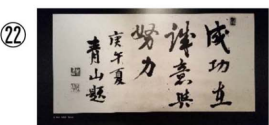 ㉒
成功在
誠意與
努力
庚午夏
青山題